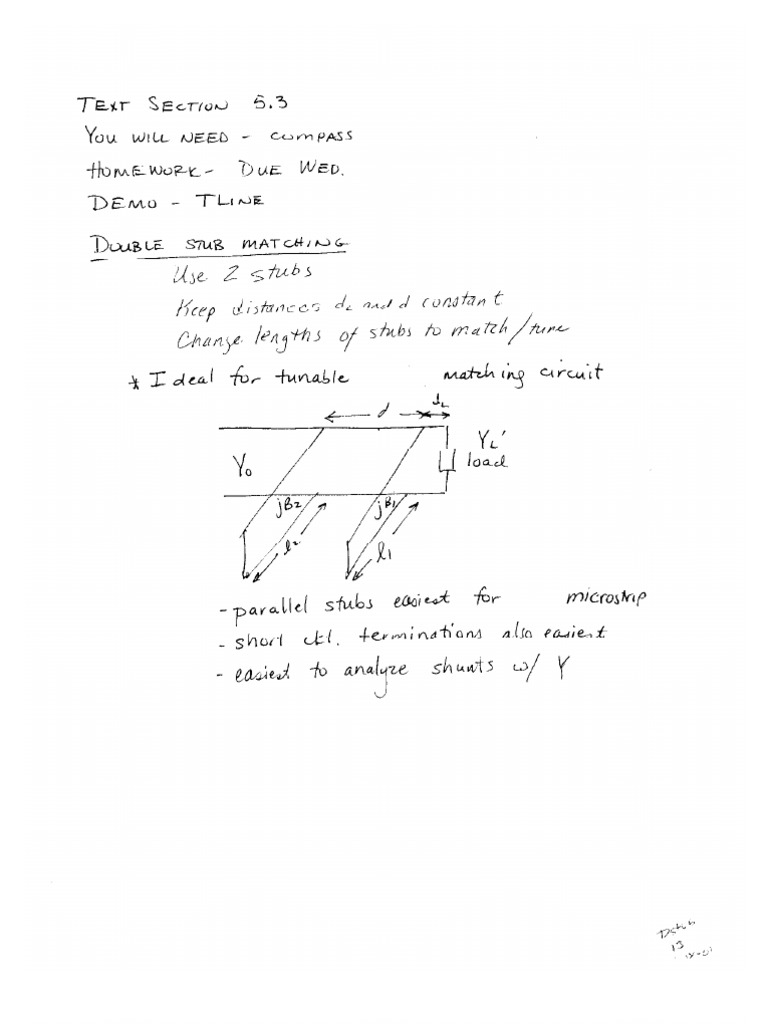 TEXT SECTION 5.3
YOU WILL NEED - COMPASS
HOMEWORK - DUE WED.
DEMO - TLINE
DOUBLE STUB MATCHING
Use 2 stubs
Keep distances dL and d constant
Change lengths of stubs to match/tune
* Ideal for tunable matching circuit
d dL
YL'
load
Y0
jB2 jB1
l2 l1
- parallel stubs easiest for microstrip
- short ckt. terminations also easiest
- easiest to analyze shunts w/ Y
Dstub
13